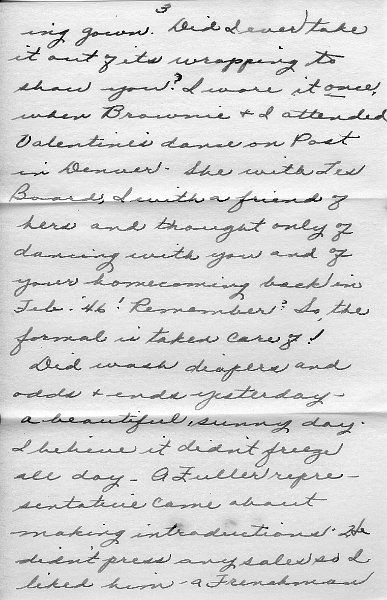 3
ing gown. Did I ever take
it out of its wrapping to
show you? I wore it once,
when Brownie & I attended
Valentine's dance on Post
in Denver. She with Les
Board, I with a friend of
hers and thought only of
dancing with you and of
your homecoming back in
Feb. '46! Remember? So, the
formal is taken care of!
Did wash diapers and
odds & ends yesterday -
a beautiful, sunny day.
I believe it didn't freeze
all day - A Fuller repre-
sentative came about
making introductions. He
didn't press any sales so I
liked him - a Frenchman